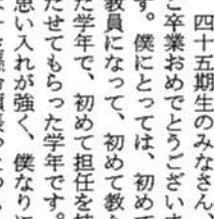 四十五期生のみなさん
ご卒業おめでとうござい
す。僕にとっては、初め
教員になって、初めて教
た学年で、初めて担任を
たせてもらった学年です。
思い入れが強く、僕なりに